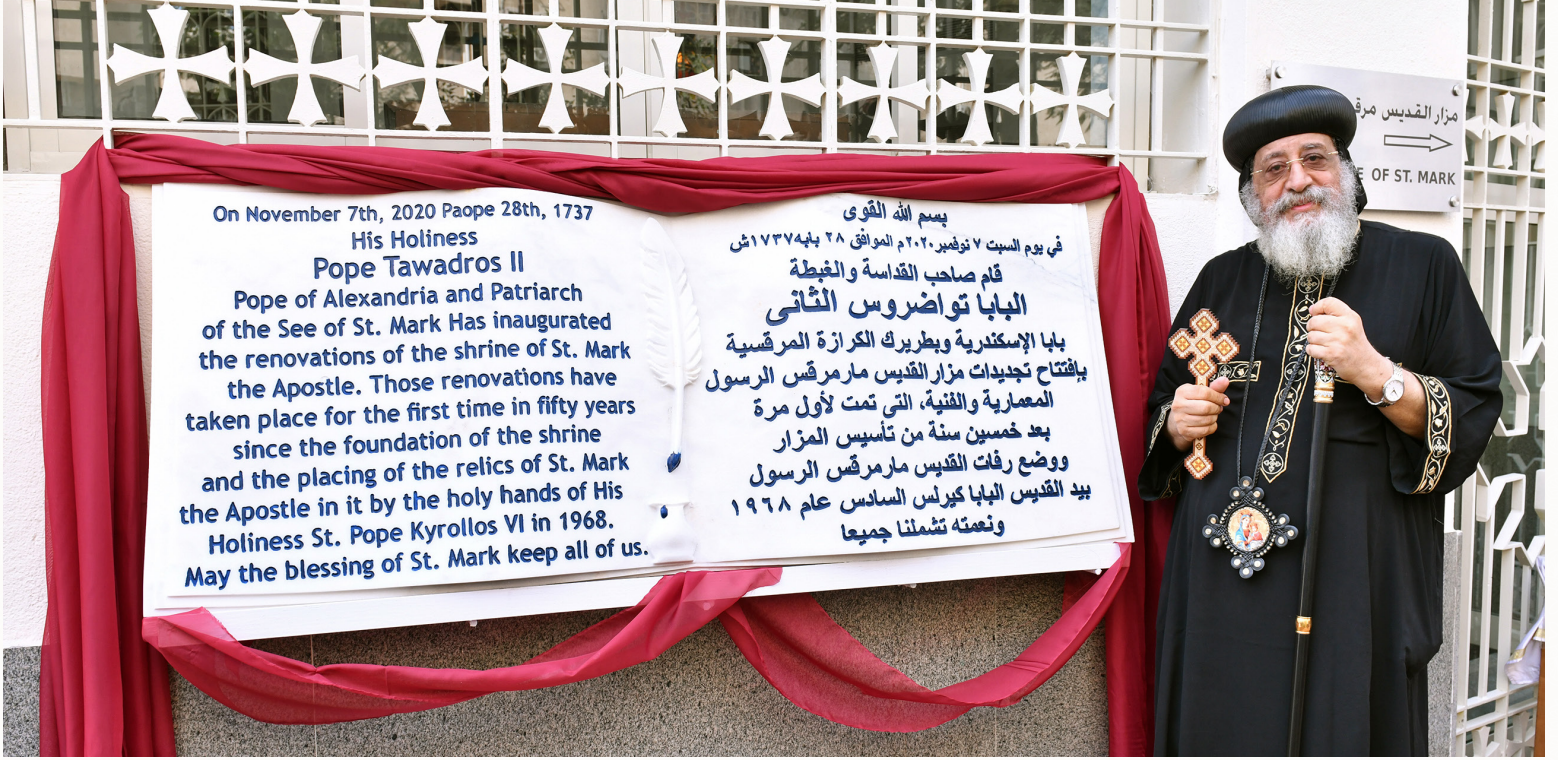 On November 7th, 2020 Paope 28th, 1737
His Holiness
Pope Tawadros II
Pope of Alexandria and Patriarch
of the See of St. Mark Has inaugurated
the renovations of the shrine of St. Mark
the Apostle. Those renovations have
taken place for the first time in fifty years
since the foundation of the shrine
and the placing of the relics of St. Mark
the Apostle in it by the holy hands of His
Holiness St. Pope Kyrollos VI in 1968.
May the blessing of St. Mark keep all of us.
بسم الله القوى
في يوم السبت ٧ نوفمبر٢٠٢٠م الموافق ٢٨ بابه١٧٣٧ش
قام صاحب القداسة والغبطة
البابا تواضروس الثانى
بابا الإسكندرية وبطريرك الكرازة المرقسية
بإفتتاح تجديدات مزار القديس مارمرقس الرسول
المعمارية والفنية، التى تمت لأول مرة
بعد خمسين سنة من تأسيس المزار
ووضع رفات القديس مارمرقس الرسول
بيد القديس البابا كيرلس السادس عام ١٩٦٨
ونعمته تشملنا جميعا
مزار القديس
OF ST. MARK